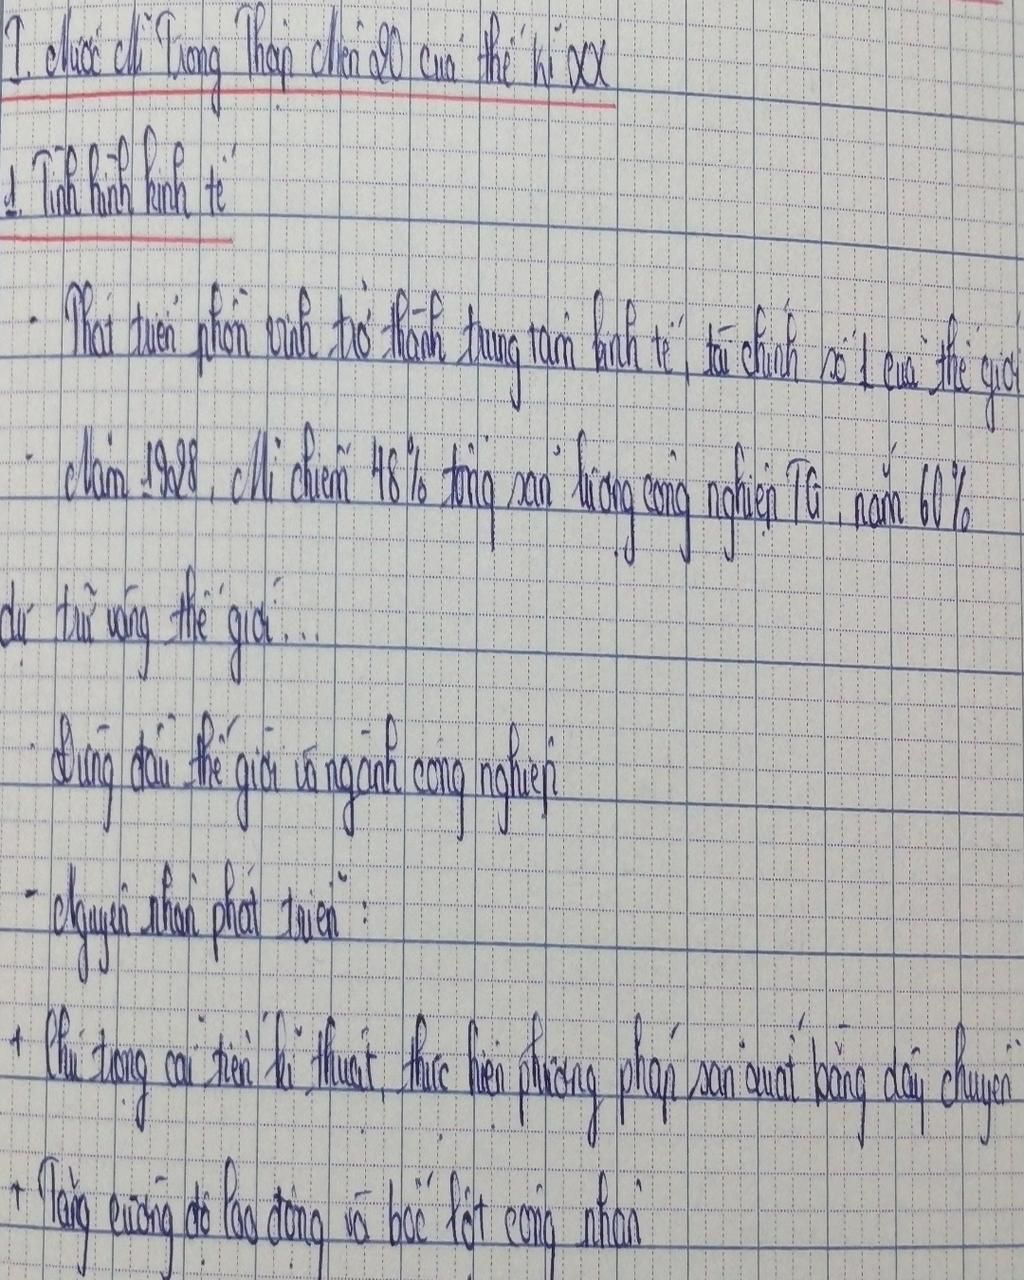 I. Nước Mĩ Trong Thập Niên 20 của thế kỉ XX
1. Tình hình kinh tế
- Phát triển phồn vinh trở thành trung tâm kinh tế, tài chính số 1 của thế giới
- Năm 1928, Mĩ chiếm 48% tổng sản lượng công nghiệp TG, nắm 60%
dự trữ vàng thế giới...
- Đứng đầu thế giới về ngành công nghiệp
- Nguyên nhân phát triển:
+ Chú trọng cải tiến kĩ thuật, thực hiện phương pháp sản quất bằng dây chuyền
+ Tăng cường độ lao động và bóc lột công nhân